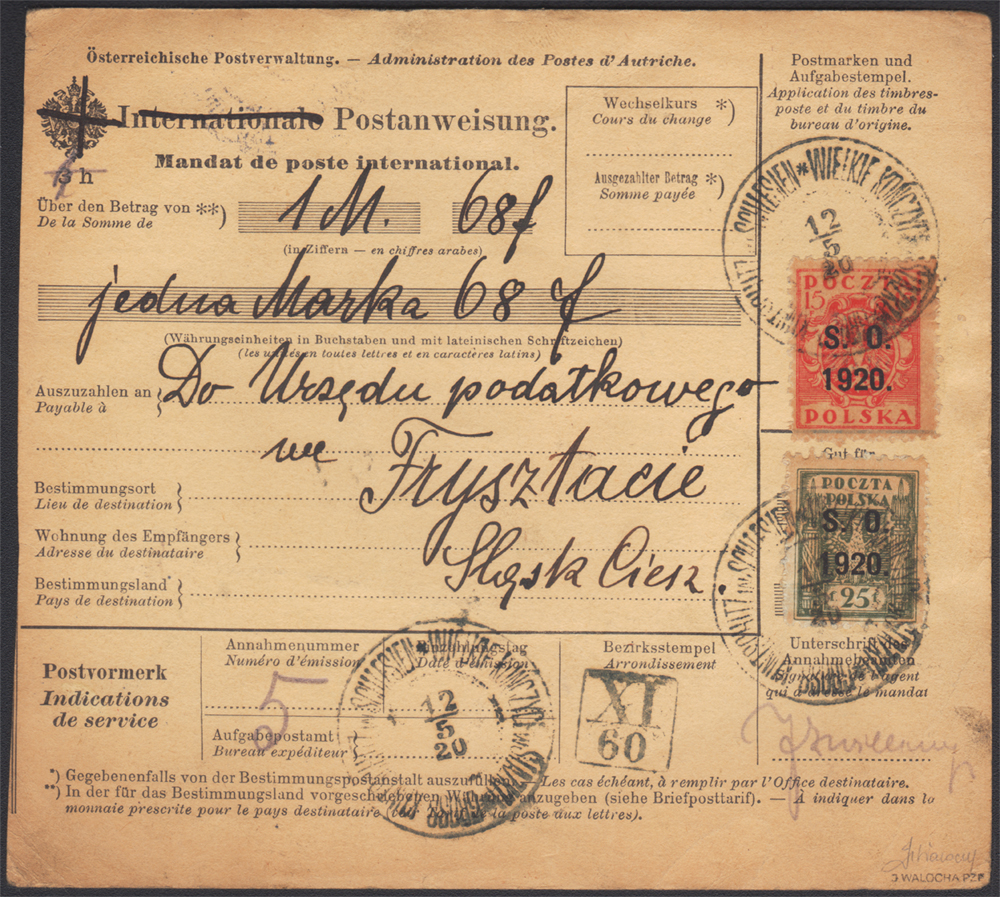 Österreichische Postverwaltung. — Administration des Postes d'Autriche.
Internationale Postanweisung.
Mandat de poste international.
3 h
Über den Betrag von **)
De la Somme de
1 M. 68 f
(in Ziffern — en chiffres arabes)
jedna Marka 68 f
(Währungseinheiten in Buchstaben und mit lateinischen Schriftzeichen)
(les unités en toutes lettres et en caractères latins)
Auszuzahlen an
Payable à
Do Urzędu podatkowego
we Frysztacie
Bestimmungsort
Lieu de destination
Wohnung des Empfängers
Adresse du destinataire
Śląsk Ciesz.
Bestimmungsland
Pays de destination
Wechselkurs *)
Cours du change
Ausgezahlter Betrag *)
Somme payée
Postmarken und
Aufgabestempel.
Application des timbres-
poste et du timbre du
bureau d'origine.
WIELKIE KOŃCZYCE
12/5
20
POCZTA
15
S. O.
1920.
POLSKA
Gut für
POCZTA
POLSKA
S. O.
1920.
25
20
Unterschrift des
Annahmebeamten
Signature de l'agent
qui a dressé le mandat
Postvormerk
Indications
de service
Annahmenummer
Numéro d'émission
5
Aufgabepostamt
Bureau expéditeur
Einzahlungstag
Date d'émission
WIELKIE KOŃCZYCE
12/5
20
Bezirksstempel
Arrondissement
XI
60
*) Gegebenenfalls von der Bestimmungspostanstalt auszufüllen. Les cas échéant, à remplir par l'Office destinataire.
**) In der für das Bestimmungsland vorgeschriebenen anzugeben (siehe Briefposttarif). — À indiquer dans la
monnaie prescrite pour le pays destinataire de la poste aux lettres).
J. WALOCHA PZF